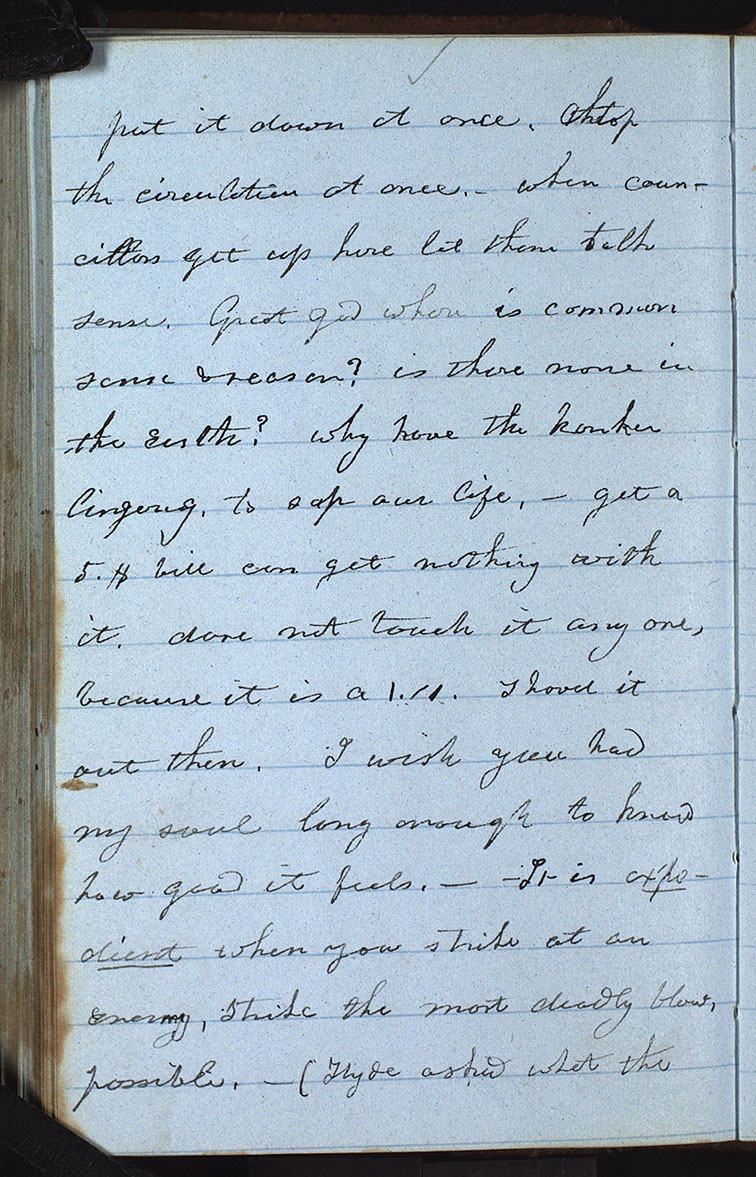 put it down at once. Stop
the circulation at once.- when coun-
cillors get up here let them talk
sense. Great god where is common
sense & reason? is there none in
the Earth? why have the konker
lingerng. to sap our life, - get a
5.$ bill can get nothing with
it. dare not touch it any one,
because it is a
out then. I wish you had
my soul long enough to know
how good it feels. - -It is expe-
dient when you strike at an
enemy, strike the most deadly blow,
possible. - (Hyde asked what the